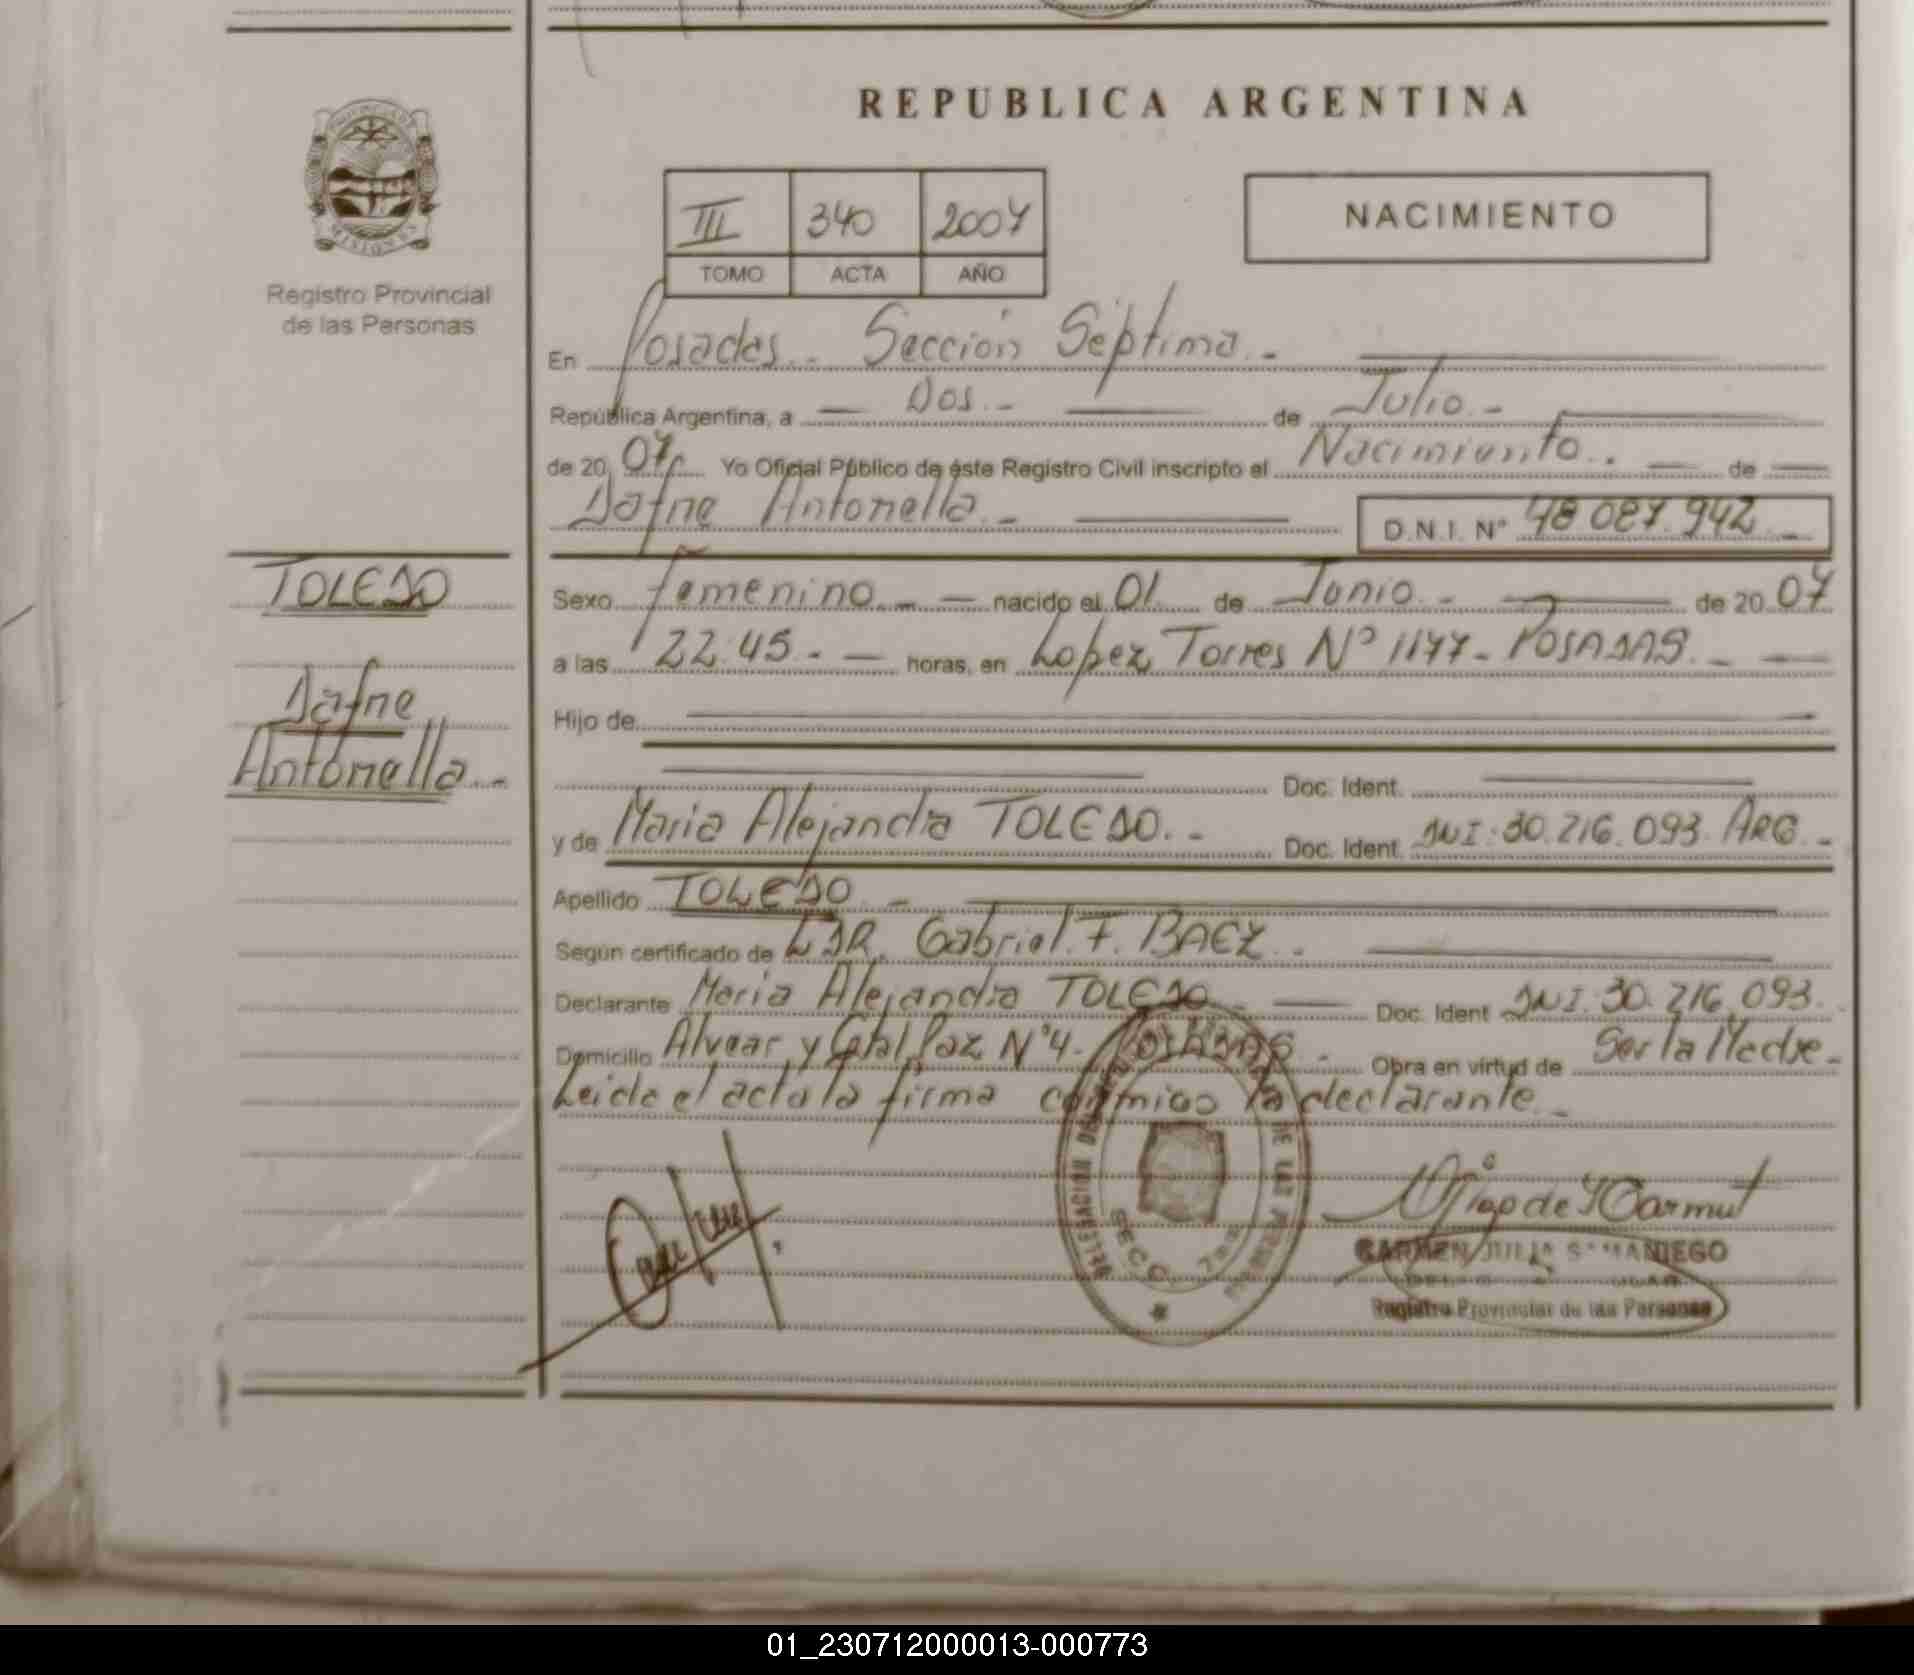 REPUBLICA ARGENTINA
PROVINCIA DE
MISIONES
Registro Provincial
de las Personas
III 340 2007
TOMO ACTA AÑO
NACIMIENTO
En Posadas.. Sección Séptima.-
República Argentina, a Dos.- de Julio.-
de 20 07 Yo Oficial Público de éste Registro Civil inscripto el Nacimiento.. de
Dafne Antonella.- D.N.I. N° 48 087.942
TOLEDO
Dafne
Antonella..-
Sexo femenino.- nacido el 01 de Junio.- de 20 07
a las 22:45.- horas, en Lopez Torres N° 1177- POSADAS.-
Hijo de
Doc. Ident.
y de Maria Alejandra TOLEDO.- Doc. Ident. DNI: 30.216.093. ARG.-
Apellido TOLEDO.-
Según certificado de DR. Gabriel. F. BAEZ.-
Declarante Maria Alejandra TOLEDO Doc. Ident DNI: 30.216.093.
Domicilio Alvear y Cptal Paz N°4- POSADAS.- Obra en virtud de Ser la Madre.-
Leida el acta la firma conmigo la declarante.-
SECC. 7ma
CARMEN JULIA SAMANIEGO
Registro Provincial de las Personas
01_230712000013-000773